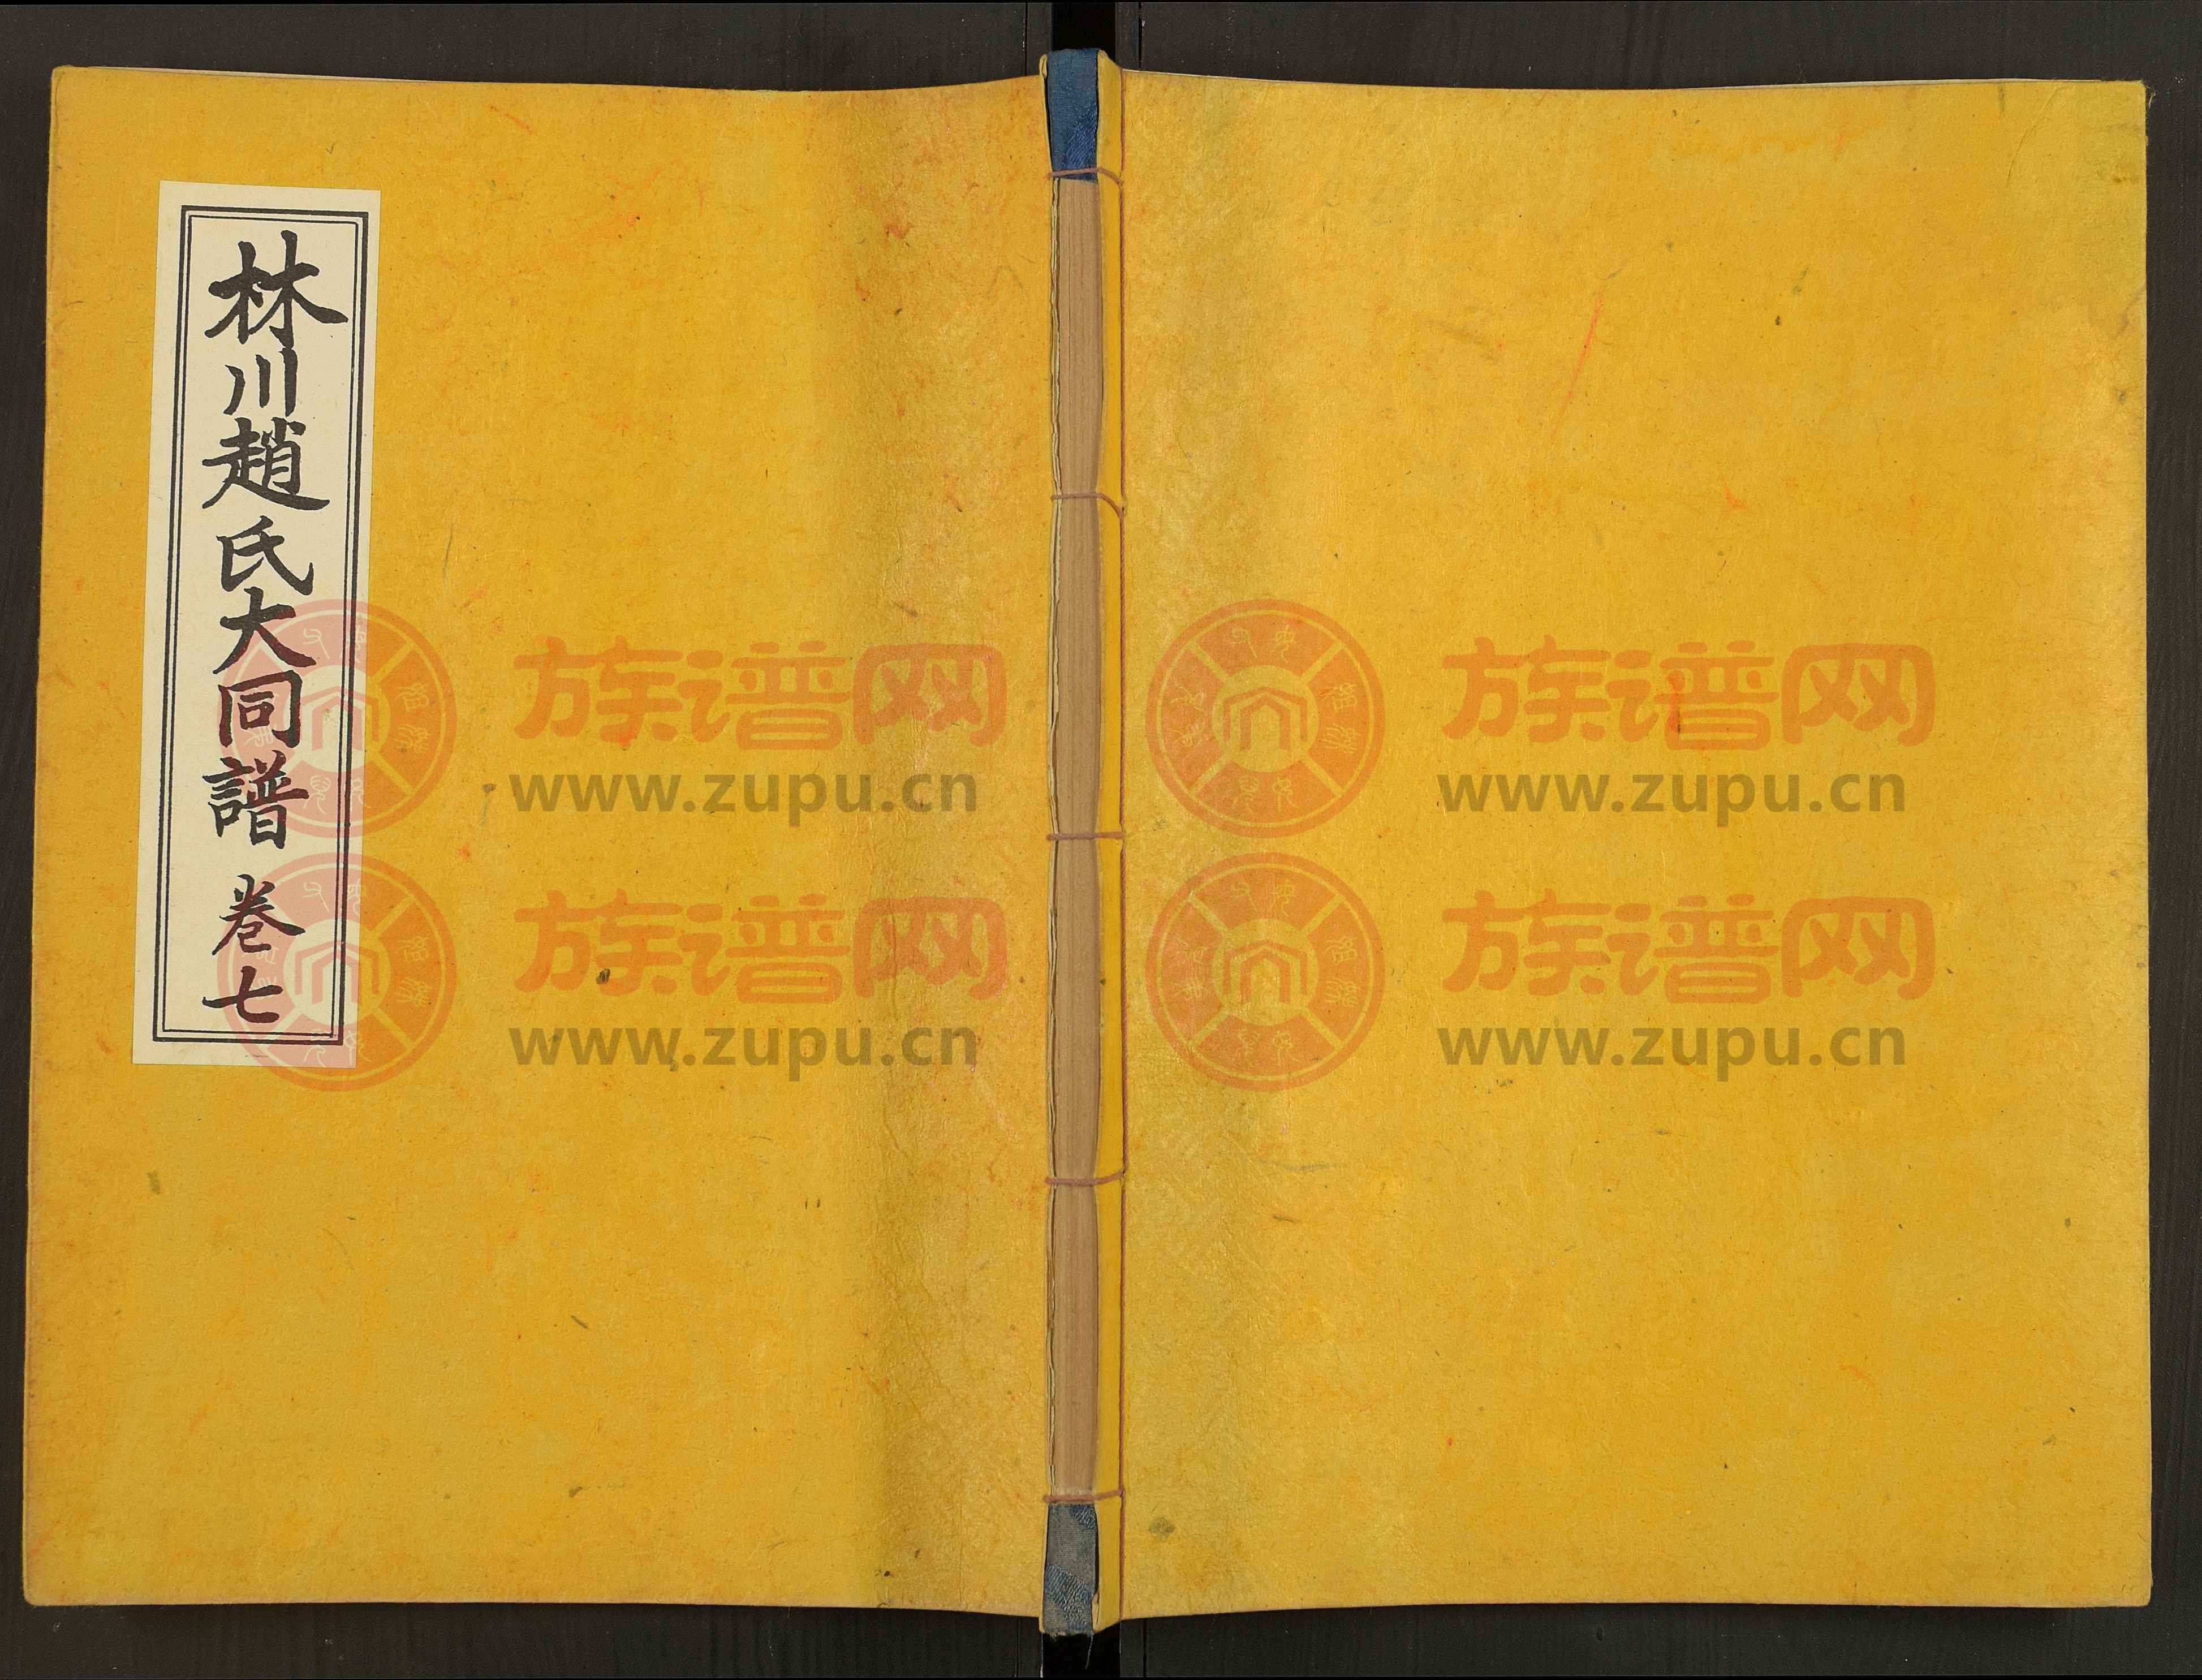 林川趙氏大同譜 卷七
族谱网
www.zupu.cn
族谱网
www.zupu.cn
族谱网
www.zupu.cn
族谱网
www.zupu.cn